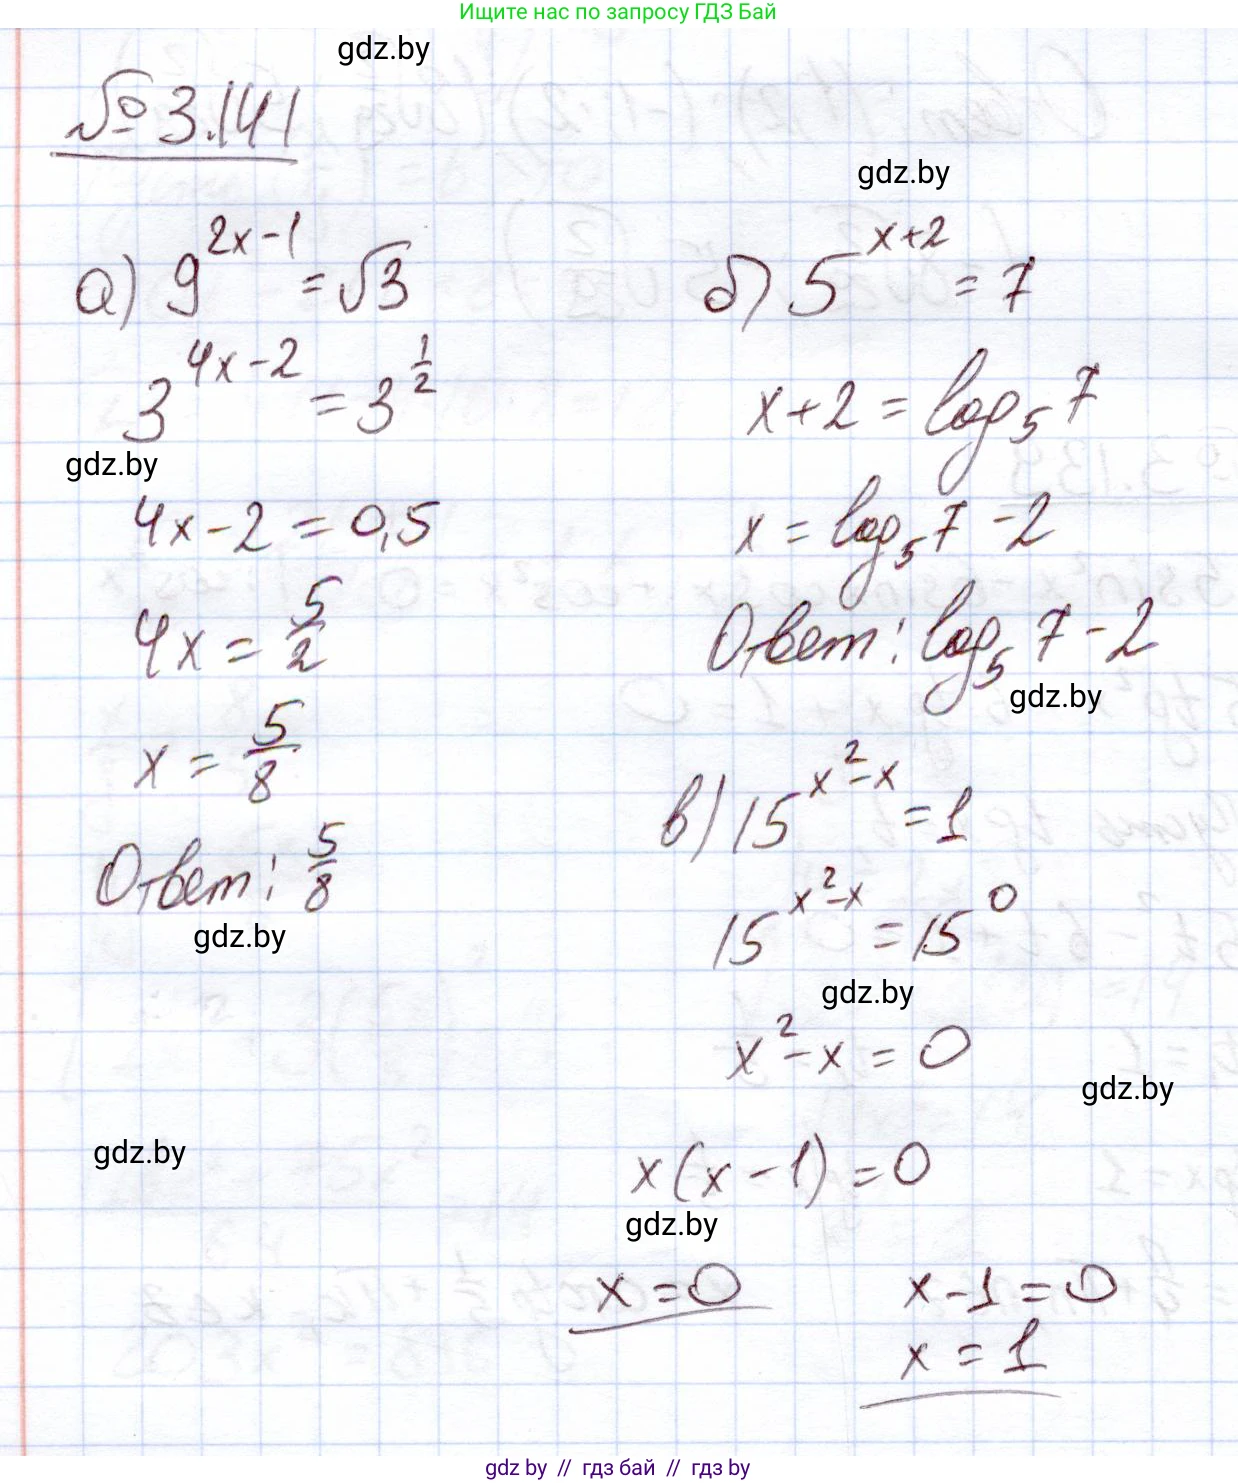 Ищите нас по запросу ГДЗ Бай
gdz.by
№ 3.141
а) 9^(2x-1) = √3
3^(4x-2) = 3^(1/2)
gdz.by
4x-2 = 0,5
4x = 5/2
x = 5/8
Ответ: 5/8
gdz.by
gdz.by
gdz.by
б) 5^(x+2) = 7
x+2 = log₅7
x = log₅7 -2
Ответ: log₅7 -2
gdz.by
в) 15^(x²-x) = 1
15^(x²-x) = 15⁰
gdz.by
x²-x = 0
gdz.by
x(x-1) = 0
gdz.by
x = 0
x-1 = 0
x = 1
gdz.by // гдз бай // гдз by